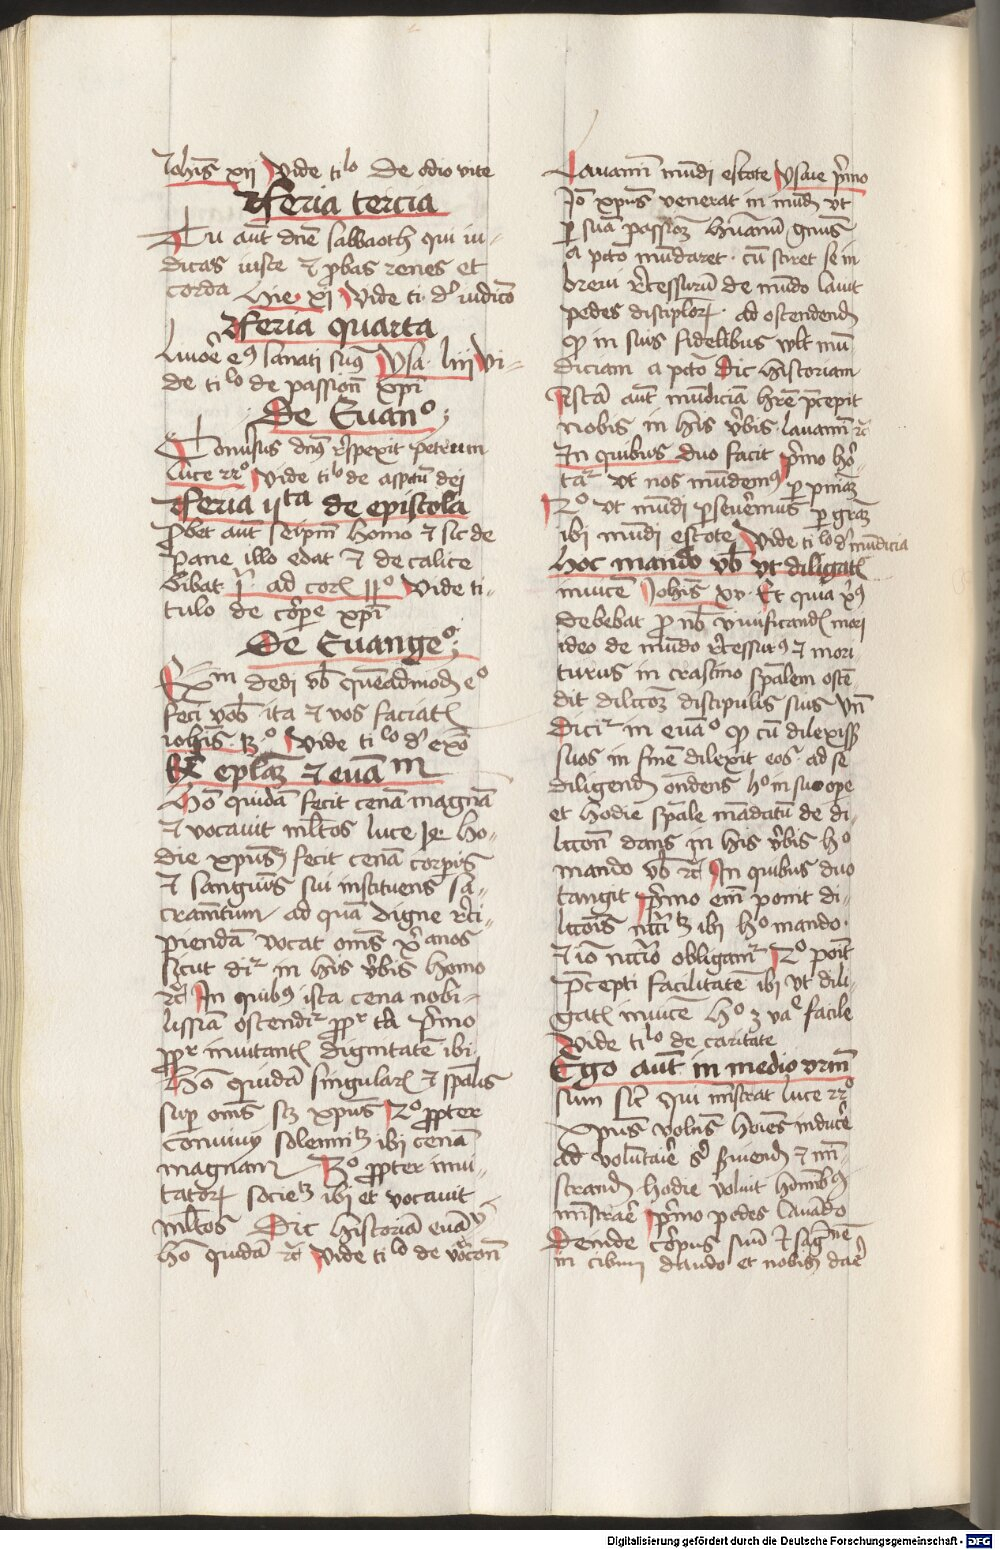 Johis xij Vide tilo De odio vite
Feria tercia
Tu aut dne sabbaoth qui iu-
dicas iuste et probas renes et
corda Hie· xi Vide ti· d' iudico
Feria quarta
Livore eius sanati sumus Ysa· liij Vi-
de tilo de passion xpi
De Euano
Conuersus dns respexit petrum
luce 22o Vide tilo de aspectu dei
Feria iita de epistola
Probet aut seipm homo et sic de
pane illo edat et de calice
bibat i· ad cor· 11o Vide ti-
tulo de corpe xpi
De Euangeo
Exm dedi vob quemadmodum eo
feci vob ita et vos faciatis
iohis· 13o Vide tilo d' exo
Ex eplam et euam
Ho quidam fecit cenam magnam
et vocauit multos luce 14 Ho-
die xpus fecit cenam corporis
et sanguis sui instituens sa-
cramtum ad quam digne reci-
piendam vocat oms xpianos
sicut dir in his verbis homo
rc In quibus ista cena nobi-
lissima ostendir ppr tria Primo
ppr inuitantis dignitatem ibi
Ho quidam singularis et spalis
super oms scz xpus 2o propter
conuiuij solemnitatem ibi cenam
magnam 3o propter inui-
tatorum societatem ibi et vocauit
multos Dic historiam euam
ho quidam rc Vide tilo de vocacon
Lauamini mundi estote Ysaie primo
Io xpus venerat in mundum vt
per suam passionem humanum genus
a pcto mundaret· cum sciret se in
breui recessurum de mundo lauit
pedes discipulorum· ad ostendendum
quod in suis fidelibus vult mun
diciam a pcto Dic historiam
Istam aut mundiciam habere precepit
nobis in his verbis lauamini rc
In quibus duo facit primo hor
tar vt nos mundemus per pniam
2o vt mundi perseueremus per gram
ibi mundi estote Vide tilo d' mundicia
Hoc mando vob vt diligatis
inuicem Johis xv· Et quia xpus
debebat pro nob viuificandis mori
ideo de mundo recessurus et mori
turus in crastino spalem osten
dit dilectionem discipulis suis Vnde
dicir in euao quod cum dilexisset
suos in finem dilexit eos· ad se
diligendum ondens ho in suo ope
et hodie spale mandatum de di-
leccon dans in his verbis ho
mando vob rc In quibus duo
tangit primo eni ponit di-
leccois nccitatem ibi ho mando·
et io nccio obligamur 2o ponit
precepti facilitatem ibi vt dili-
gatis inuicem Ho est valde facile
Vide tilo de caritate
Ego aut in medio vrm
sum sicut qui ministrat luce 22o
Xpus volens hoies inducere
ad voluntarie seruiendum et mi-
nistrandum hodie voluit hominibus
ministrare primo pedes lauando
Deinde corpus suum et sagwinem
in cibum dando et nobis dare